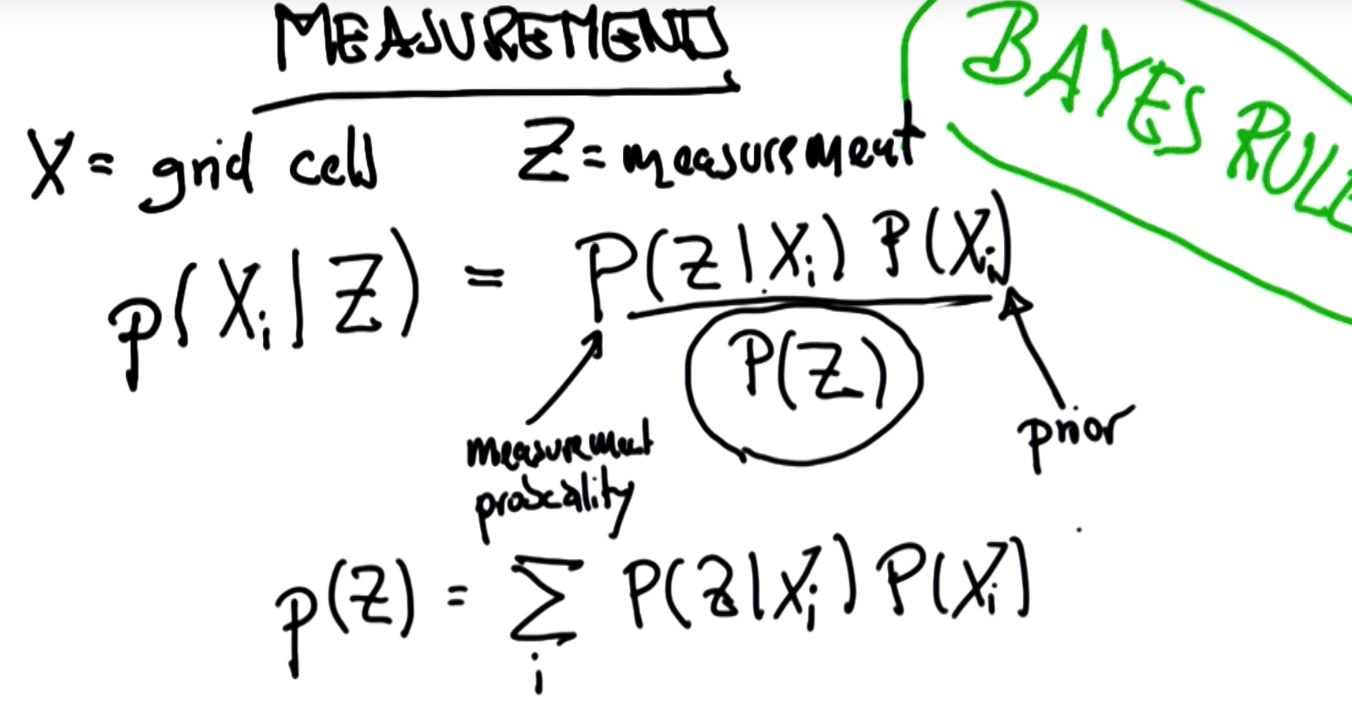 MEASUREMENT
BAYES RULE
X = grid cell Z = measurement
p(Xi|Z) = P(Z|Xi) P(Xi)
P(Z)
measurement
probability
prior
p(Z) = ∑ P(Z|Xi) P(Xi)
i